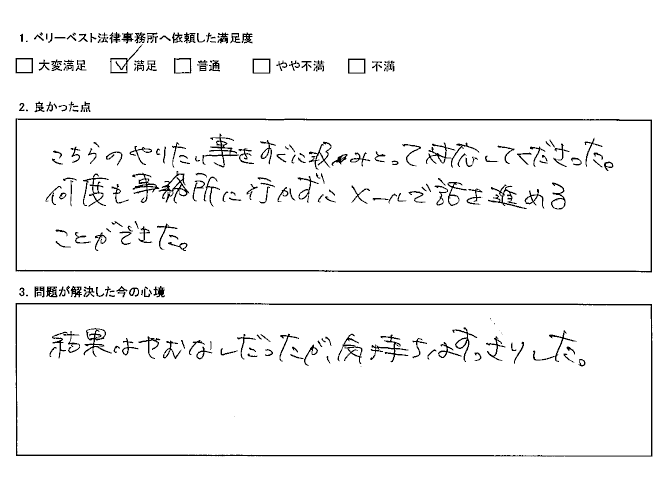 1. ベリーベスト法律事務所へ依頼した満足度
□ 大変満足 ☑ 満足 □ 普通 □ やや不満 □ 不満
2. 良かった点
こちらのやりたい事をすぐに汲みとって対応してくださった。
何度も事務所に行かずにメールで話を進める
ことができた。
3. 問題が解決した今の心境
結果はやむなしだったが、気持ちはすっきりした。